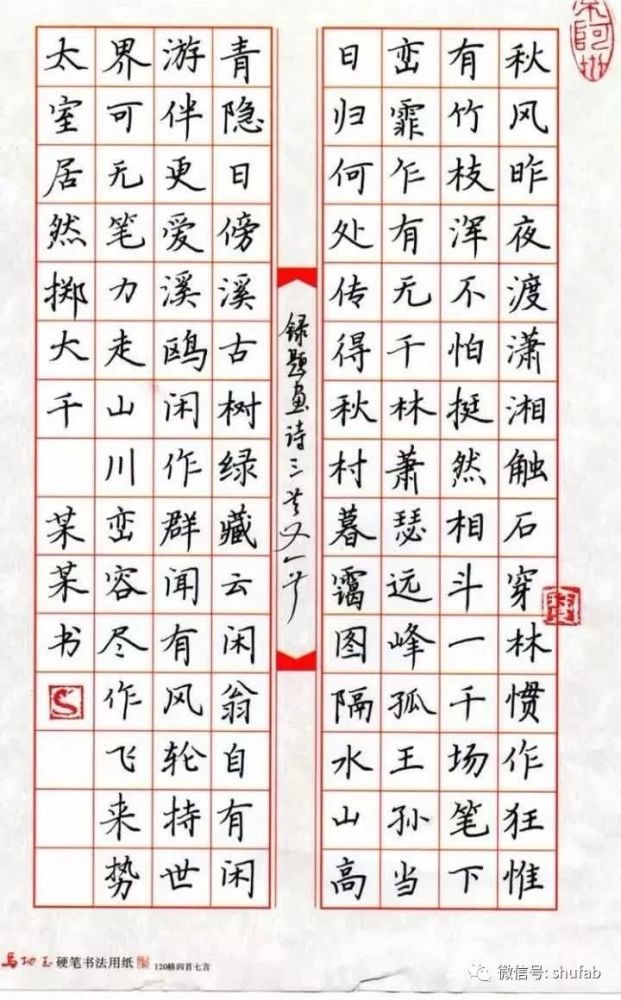 秋风昨夜渡潇湘触石穿林惯作狂惟
有竹枝浑不怕挺然相斗一千场笔下
峦霏乍有无千林萧瑟远峰孤王孙当
日归何处传得秋村暮霭图隔水山高
録题画诗三首又一首
青隐日傍溪古树绿藏云闲翁自有闲
游伴更爱溪鸥闲作群闻有风轮持世
界可无笔力走山川峦容尽作飞来势
太室居然掷大千
某某书
硬笔书法用纸 120格四首七言
微信号: shufab